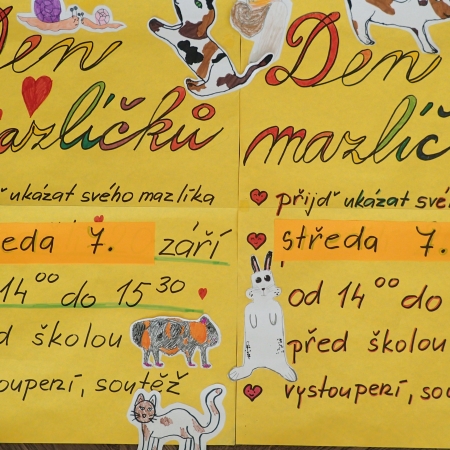 Den
mazlíčků
ukázat svého mazlíka
7. září
14⁰⁰ do 15³⁰
školou
soutěž
Den
přijď ukázat
středa 7.
od 14⁰⁰ do
před školou
vystoupení,